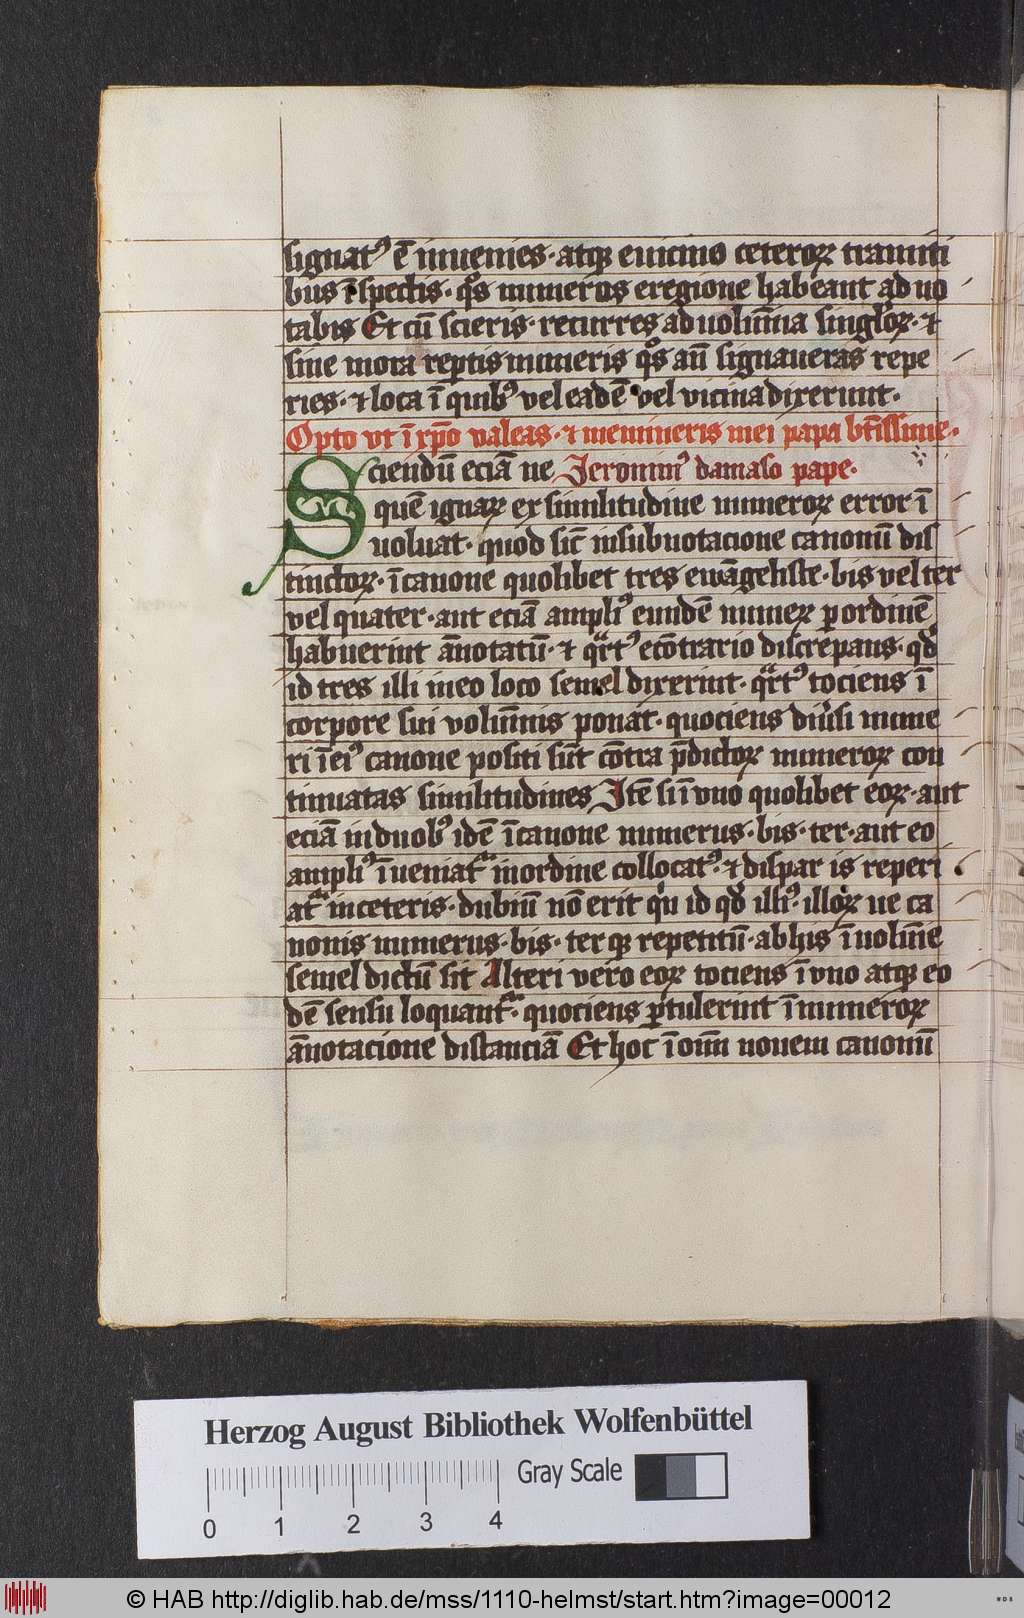 signatꝰ ē inuenies · atqꝫ e uicino ceteroꝝ tramiti
bus īspectis · qͦs numeros eregione habeant ad no
tabis Et cū scieris · recurres ad uolūina singloꝝ · ⁊
sine mora reptis numeris qͦs an̄ signaueras repe
ries · ⁊ loca ī quibꝰ vel eadē vel vicina dixerunt ·
Opto vt ī xp̄o valeas · ⁊ memineris mei papa bt̄issime ·
Sciendū eciā ne Jeronimꝰ damaso pape ·
quē ignaꝝ ex similitudine numeroꝝ error ī
uoluat · quod sic̄ in subnotacione canonū dis
tinctoꝝ · ī canone quolibet tres ewāgeliste · bis vel ter
vel quater · aut eciā ampliꝰ eundē numeꝝ p ordinē
habuerint ānotatū · ⁊ qͣrtꝰ ecōtrario discrepans · qd̄
id tres illi in eo loco semel dixerint · qͣrtꝰ tociens ī
corpore sui volūinis ponat · quociens diuͥsi nume
ri ī eiꝰ canone positi sūt cōtra p̄dictoꝝ numeroꝝ con
tinuatas similitudines Jtē si ī vno quolibet eoꝝ · aut
eciā in duobꝰ idē ī canone numerus · bis · ter · aut eo
ampliꝰ īueniatᷣ in ordine collocatꝰ · ⁊ dispar is reperi
atᷣ in ceteris · dubiū nō erit qͥn id qd̄ illiꝰ · illoꝝ ue ca
nonis numerus · bis · ter qꝫ repetitū · ab his ī uolūie
semel dictū sit Alteri vero eoꝝ tociens ī vno atqꝫ eo
dē sensu loquantᷣ · quociens ptulerint ī numeroꝝ
ānotacione distanciā Et hoc ī oīm nouem canonū
Herzog August Bibliothek Wolfenbüttel
Gray Scale
0 1 2 3 4
© HAB http://diglib.hab.de/mss/1110-helmst/start.htm?image=00012